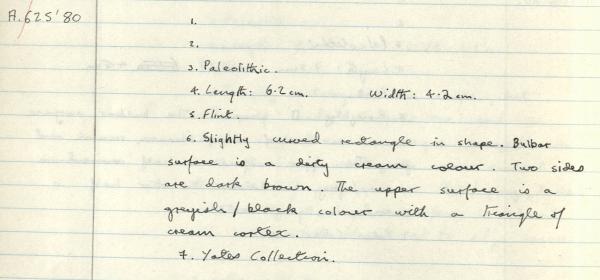 A.625'80
1.
2.
3. Paleolithic.
4. Length: 6.2cm. Width: 4.2cm.
5. Flint.
6. Slightly curved rectangle in shape. Bulbar
surface is a dirty cream colour. Two sides
are dark brown. The upper surface is a
greyish/black colour with a triangle of
cream cortex.
7. Yates Collection.